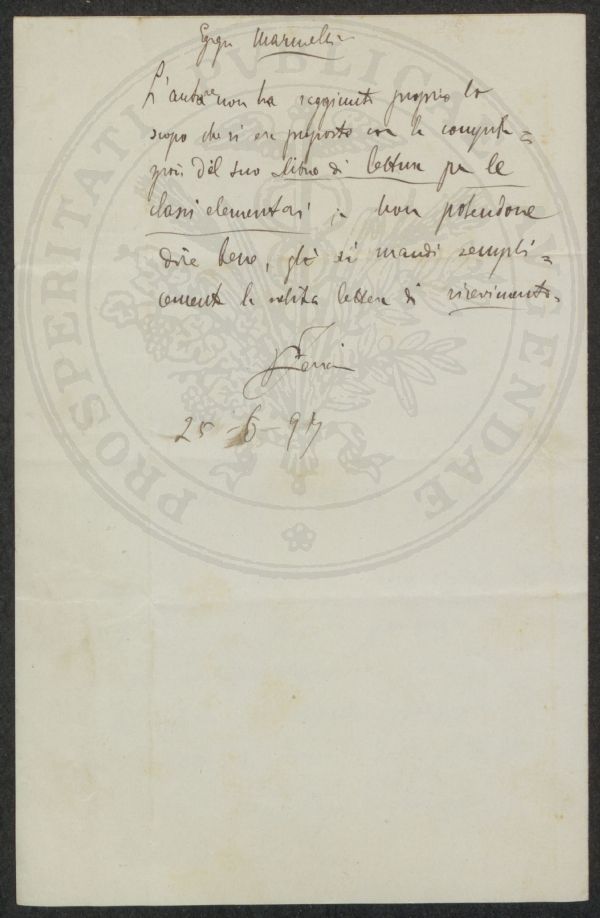 Egregio Marinelli
L'autore non ha raggiunto proprio lo
scopo che si era proposto con la compila=
zione del suo libro di lettura per le
classi elementari; non potendone
dire bene, gli si mandi sempli=
cemente la solita lettera di ricevimento.
25-6-97
PROSPERITATI PUBLICAE AUGENDAE